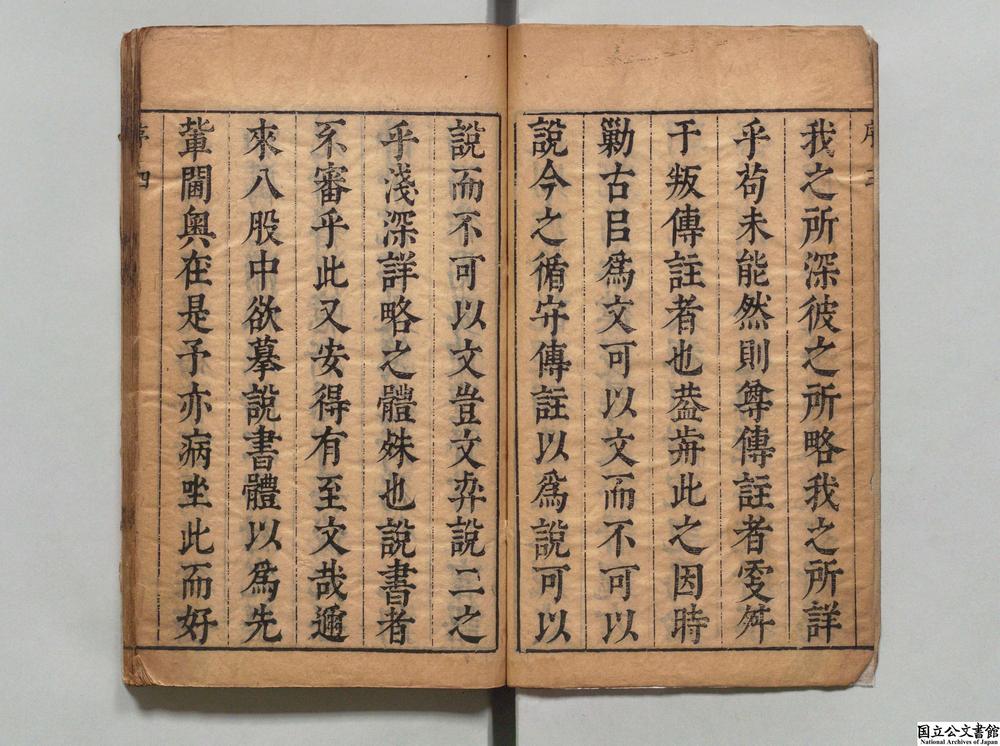 序三
我之所深彼之所略我之所詳
乎苟未能然則尊傳註者舛
于叛傳註者也葢歬此之因時
勦古㠯爲文可以文而不可以
說今之循守傳註以爲說可以
說而不可以文豈文弈說二之
乎淺深詳略之體姝也說書者
不審乎此又安得有至文哉邇
來八股中欲摹說書體以爲先
輩閫奧在是予亦病㘴此而好
序四
国立公文書館
National Archives of Japan